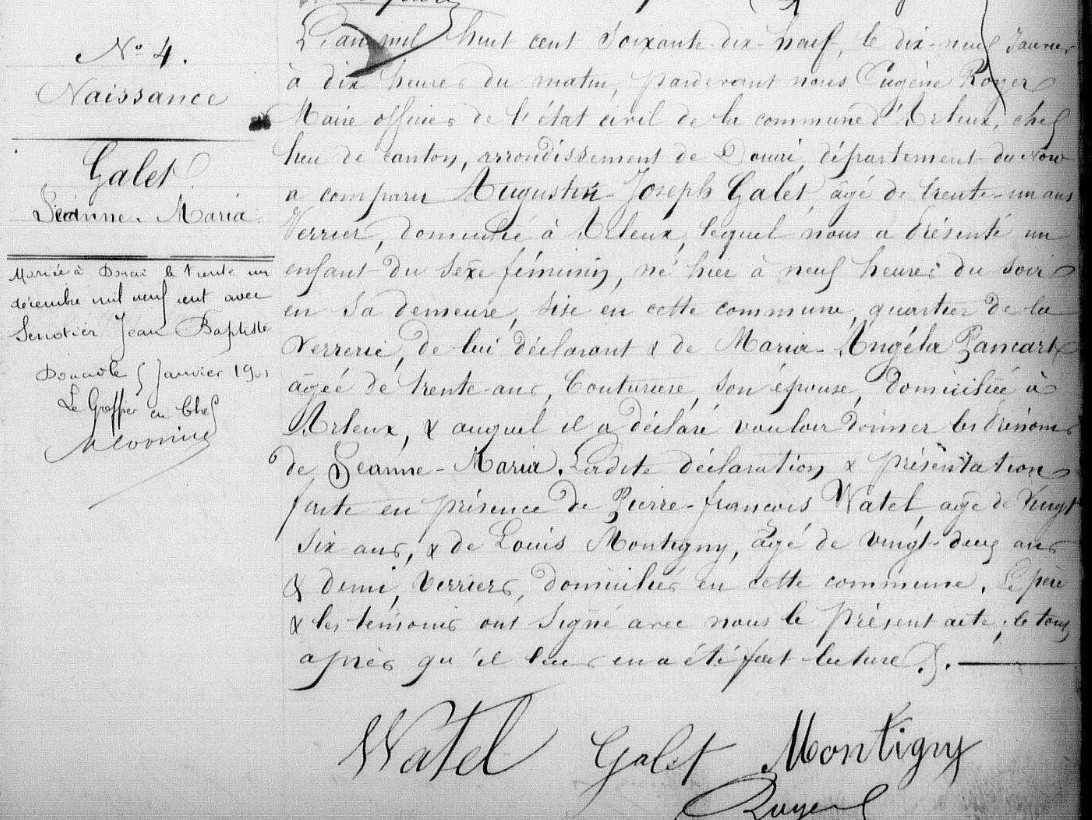 N° 4.
Naissance
Galet
Jeanne-Maria
Mariée à Douai le trente un
décembre mil neuf cent avec
Senotier Jean Baptiste
Douai le 5 Janvier 1901
Le Greffier en Chef
L'an mil huit cent soixante-dix-neuf, le dix-neuf Janvier
à dix heures du matin, pardevant nous Eugène Royer
Maire officier de l'état civil de la commune d'Arleux, chef
lieu de canton, arrondissement de Douai, département du Nord
a comparu Augustin-Joseph Galet, âgé de trente-un ans
Verrier, domicilié à Arleux, lequel nous a présenté un
enfant du sexe féminin, né hier à neuf heures du soir
en sa demeure, sise en cette commune, quartier de la
Verrerie, de lui déclarant & de Maria-Angéla Pancart
âgée de trente-ans, Couturière, son épouse, domiciliée à
Arleux, & auquel il a déclaré vouloir donner les prénoms
de Jeanne-Maria. Ladite déclaration & présentation
faite en présence de Pierre-françois Watel, âgé de Vingt
six ans, & de Louis Montigny, âgé de vingt-deux ans
& demi, Verriers, domiciliés en cette commune. Le père
& les témoins ont signé avec nous le présent acte, le tout
après qu'il leur en a été fait lecture.
Watel Galet Montigny
Royer